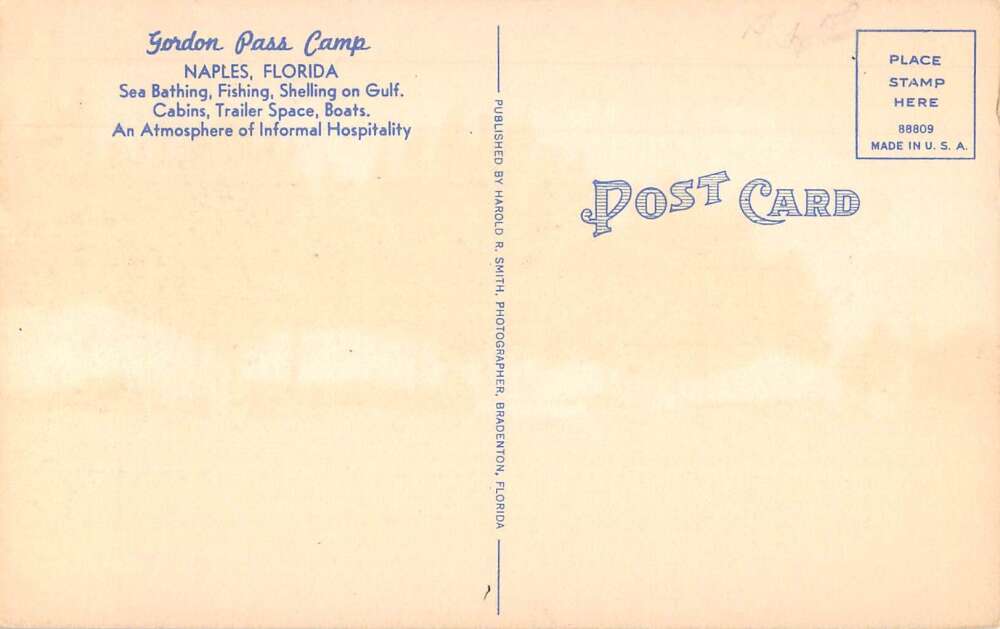 Gordon Pass Camp
NAPLES, FLORIDA
Sea Bathing, Fishing, Shelling on Gulf.
Cabins, Trailer Space, Boats.
An Atmosphere of Informal Hospitality
PUBLISHED BY HAROLD R. SMITH, PHOTOGRAPHER, BRADENTON, FLORIDA
POST CARD
PLACE
STAMP
HERE
88809
MADE IN U. S. A.